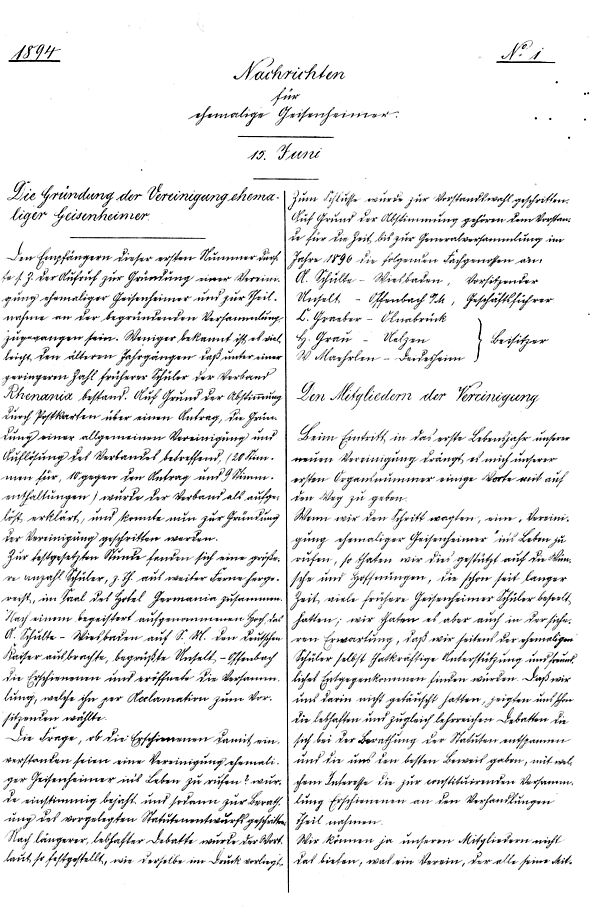 1894
No. 1
Nachrichten
für
ehemalige Geisenheimer.
15. Juni
Die Gründung der Vereinigung ehema-
liger Geisenheimer
Den Empfängern dieser ersten Nummer dürf-
te s. Z. der Aufruf zur Gründung einer Vereini-
gung ehemaliger Geisenheimer und zur Theil-
nahme an der begründenden Versammlung
zugegangen sein. Weniger bekannt ist es viel-
leicht den älteren Jahrgängen daß unter einer
geringeren Zahl früherer Schüler der Verband
Rhenania bestand. Auf Grund der Abstimmung
durch Postkarten über einen Antrag, die Grün-
dung einer allgemeinen Vereinigung und
Auflösung des Verbandes betreffend, (20 Stim-
men für, 10 gegen den Antrag und 9 Stimm-
enthaltungen) wurde der Verband als aufge-
löst erklärt, und konnte nun zur Gründung
der Vereinigung geschritten werden.
Zur festgesetzten Stunde fanden sich eine größe-
re anzahl Schüler, z. Th. aus weiter Ferne herge-
reist, im Saal des Hotel Germania zusammen.
Nach einem begeistert aufgenommenen Hoch das
A. Schülte - Wiesbaden auf S. M. den Deutschen
Kaiser ausbrachte, begrüßte Unselt, - Offenbach
die Erschienenen und eröffnete die Versamm-
lung, welche ihn per Acclamation zum Vor-
sitzenden wählte.
Die Frage, ob die Erschienenen damit ein-
verstanden seien eine Vereinigung ehemali-
ger Geisenheimer ins Leben zu rufen? wur-
de einstimmig bejaht und sodann zur Berath-
ung des vorgelegten Statutenentwurfs geschritten.
Nach längerer, lebhafter Debatte wurde der Wort-
laut so festgestellt, wie derselbe im Druck vorliegt.
Zum Schlusse wurde zur Vorstandswahl geschritten.
Auf Grund der Abstimmung gehören dem Vorstan-
de für die Zeit bis zur Generalversammlung im
Jahre 1896 die folgenden Fachgenossen an:
A. Schülte - Wiesbaden, Vorsitzender
Unselt - Offenbach, Geschäftsführer
L. Graeber - Osnabrück
H. Grau - Uelzen
W Maehrlen - Deidesheim
Beisitzer
Den Mitgliedern der Vereinigung
Beim Eintritt in das erste Lebensjahr unserer
neuen Vereinigung drängt es mich unserer
ersten Organnummer einige Worte mit auf
den Weg zu geben.
Wenn wir den Schritt wagten, eine „Vereini-
gung ehemaliger Geisenheimer" ins Leben zu
rufen, so thaten wir dies gestützt auf die Wün-
sche und Hoffnungen, die schon seit langer
Zeit viele frühere Geisenheimer Schüler beseelt
hatten; wir thaten es aber auch in der siche-
ren Erwartung, daß wir seitens der ehemaligen
Schüler selbst thatkräftige Unterstützung und freund-
liches Entgegenkommen finden würden. Daß wir
uns darin nicht getäuscht hatten, zeigten uns schon
die lebhaften und zugleich lehrreichen Debatten die
sich bei der Berathung der Statuten entspannen
und die uns den besten Beweis gaben, mit wel-
chem Interesse die zur constituirenden Versamm-
lung Erschienenen an den Verhandlungen
Theil nahmen.
Wir können ja unseren Mitgliedern nicht
das bieten, was ein Verein, der alle seine Mit-